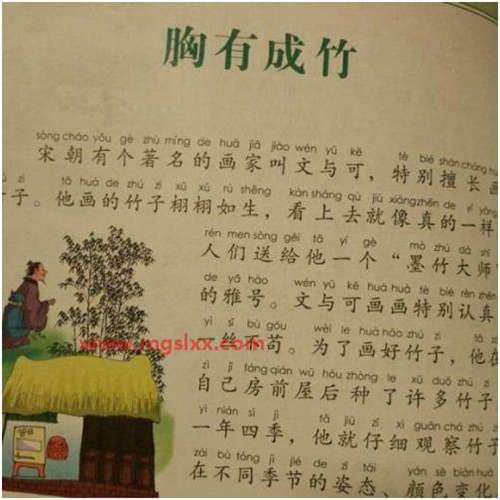 胸有成竹
sòng cháo yǒu gè zhù míng de huà jiā jiào wén yǔ kě tè bié shàn cháng
宋朝有个著名的画家叫文与可，特别擅长画
zi tā huà de zhú zi xǔ xǔ rú shēng kàn shàng qù jiù xiàng zhēn de yí yàng
子。他画的竹子栩栩如生，看上去就像真的一样
rén men sòng gěi tā yí gè mò zhú dà shī
人们送给他一个“墨竹大师”
de yǎ hào wén yǔ kě huà huà tè bié rèn zhēn
的雅号。文与可画画特别认真
yì sī bù gǒu wèi le huà hǎo zhú zi tā zài
一丝不苟。为了画好竹子，他在
zì jǐ fáng qián wū hòu zhòng le xǔ duō zhú zi
自己房前屋后种了许多竹子
yì nián sì jì tā jiù zǐ xì guān chá zhú zi
一年四季，他就仔细观察竹子
zài bù tóng jì jié de zī tài yán sè biàn huà
在不同季节的姿态、颜色变化
www.mgslxx.com